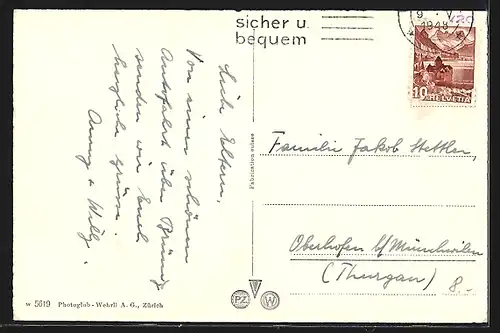 sicher u.
bequem
9. V.
1948
10
HELVETIA
Liebe Eltern,
Von einer schönen
Autofahrt über Brünig
senden wir Euch
herzliche Grüsse.
Anny + Willy.
Fabrication suisse
Familie Jakob Stettler,
Oberhofen b/Münchwilen
(Thurgau) 8.-
w 5619 Photoglob-Wehrli A. G., Zürich
PZ W